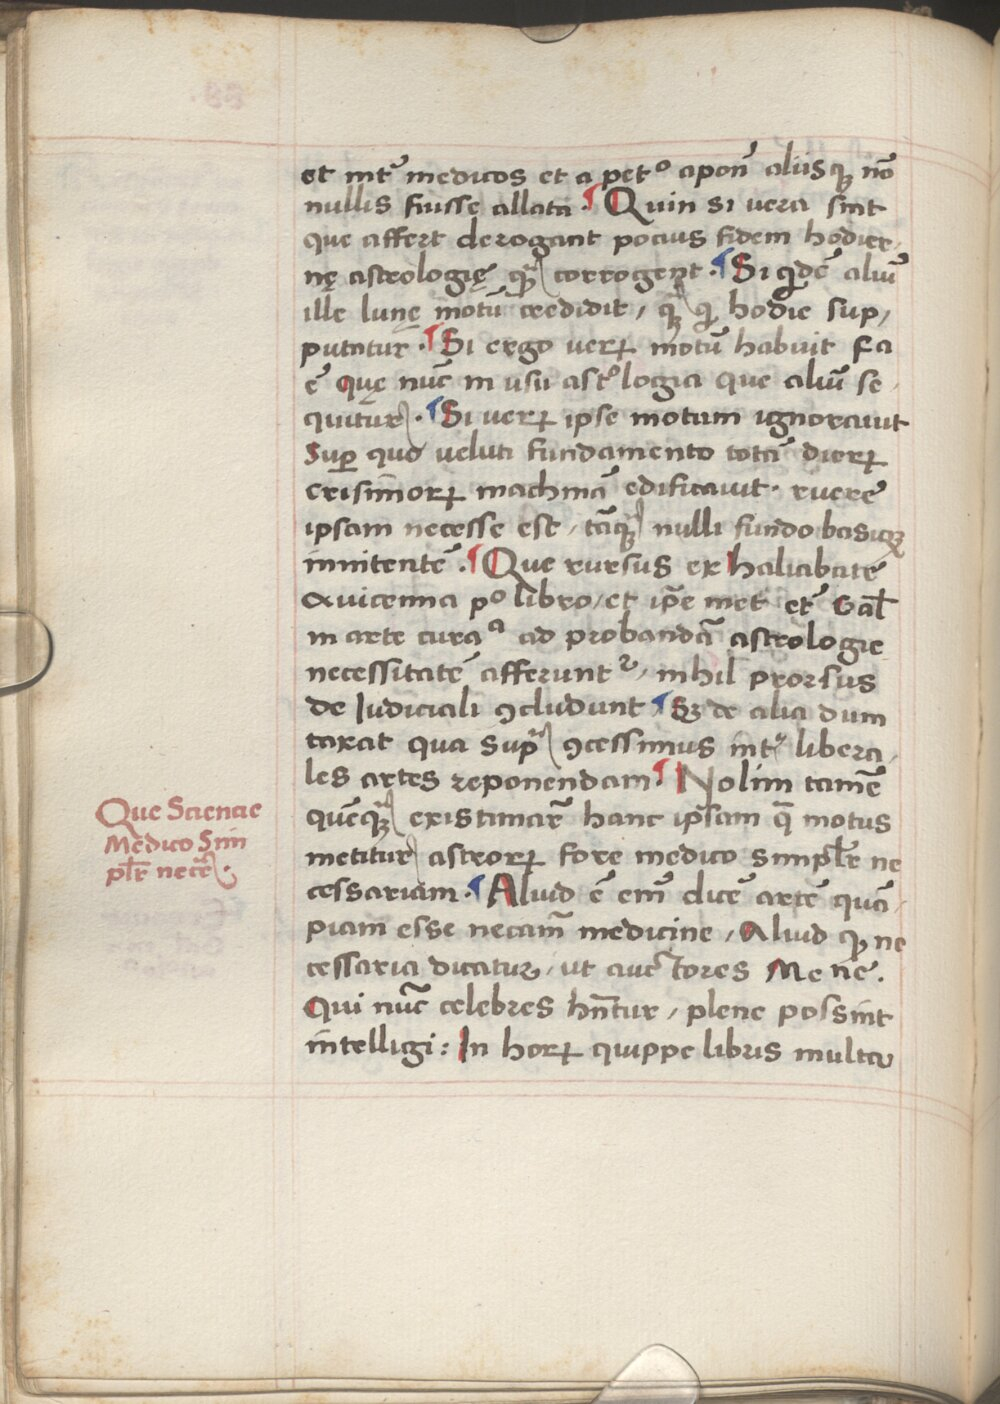 et intr̃ medicos et a petᵒ aponẽ aliisqꝫ nõ
nullis fuisse allata · ¶ Quin si uera sint
que affert derogant pocius fidem hodier,
nę astrologię qꝫᵃ corrogent · ¶ Si qidẽ aliũ
ille lunę motũ credidit, qꝫᵃ qi hodie sup,
putatur · ¶ Si ergo uerꝝ motũ habuit Fa
ẽ quę nũc in usu astᵒlogia que aliũ se,
quitur · ¶ Si uerꝝ ipse motum ignorauit
Suꝑ quo veluti fundamento totã dierꝝ
crisimorꝝ machinã edificauit · ruere
ipsam necesse est, tãqꝫᵃ nulli fundo basiqꝫ
innitentẽ . ¶ Que rursus ex haliabate
Auicenna pᵒ libro, et ip̃e met et Gal̃
in arte curaᵃ ad probandã astrologie
necessitatẽ afferunt², nihil prorsus
de Iudiciali ꝯcludunt ¶ Sꝫ de alia dum
taxat qua supᵃ ꝯcessimus intʳ libera,
les artes reponendam · ¶ Nolim tamẽ
quẽqꝫᵃ existimar̃ hanc ipsam q̃ motus
metitur astrorꝝ fore medico simpl̃r ne
cessariam · ¶ Aliud ẽ em̃ dicẽ artẽ quã,
piam esse necam̃ medicine, Aliud qꝫ ne
cessaria dicatur, ut auctores Mene.
Qui nũc celebres hñtur, plene possint
intelligi : In horꝝ quippe libris multa
Que Scientie
Medico Sim
pl̃r necẽ ·